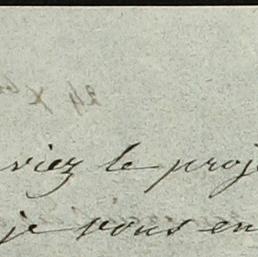 viez le proje
je vous en